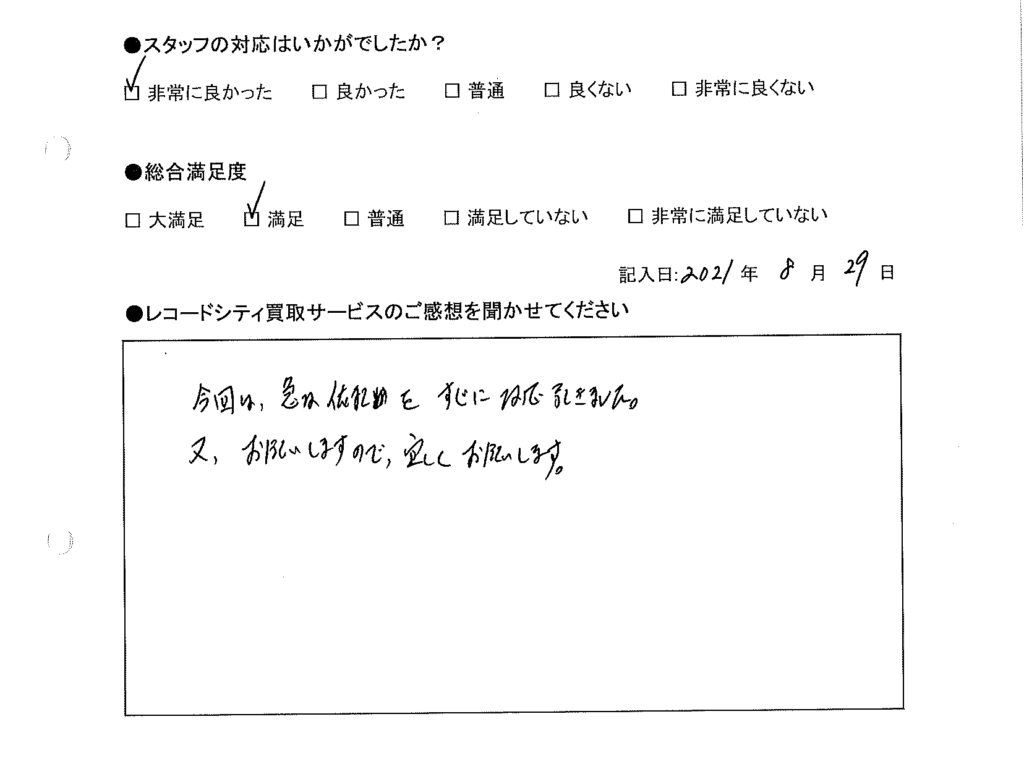 ●スタッフの対応はいかがでしたか？
☑ 非常に良かった □ 良かった □ 普通 □ 良くない □ 非常に良くない
●総合満足度
□ 大満足 ☑ 満足 □ 普通 □ 満足していない □ 非常に満足していない
記入日:2021年 8月 29日
●レコードシティ買取サービスのご感想を聞かせてください
今回は、急な依頼をすぐに対応頂きました。
又、お願いしますので、宜しくお願いします。